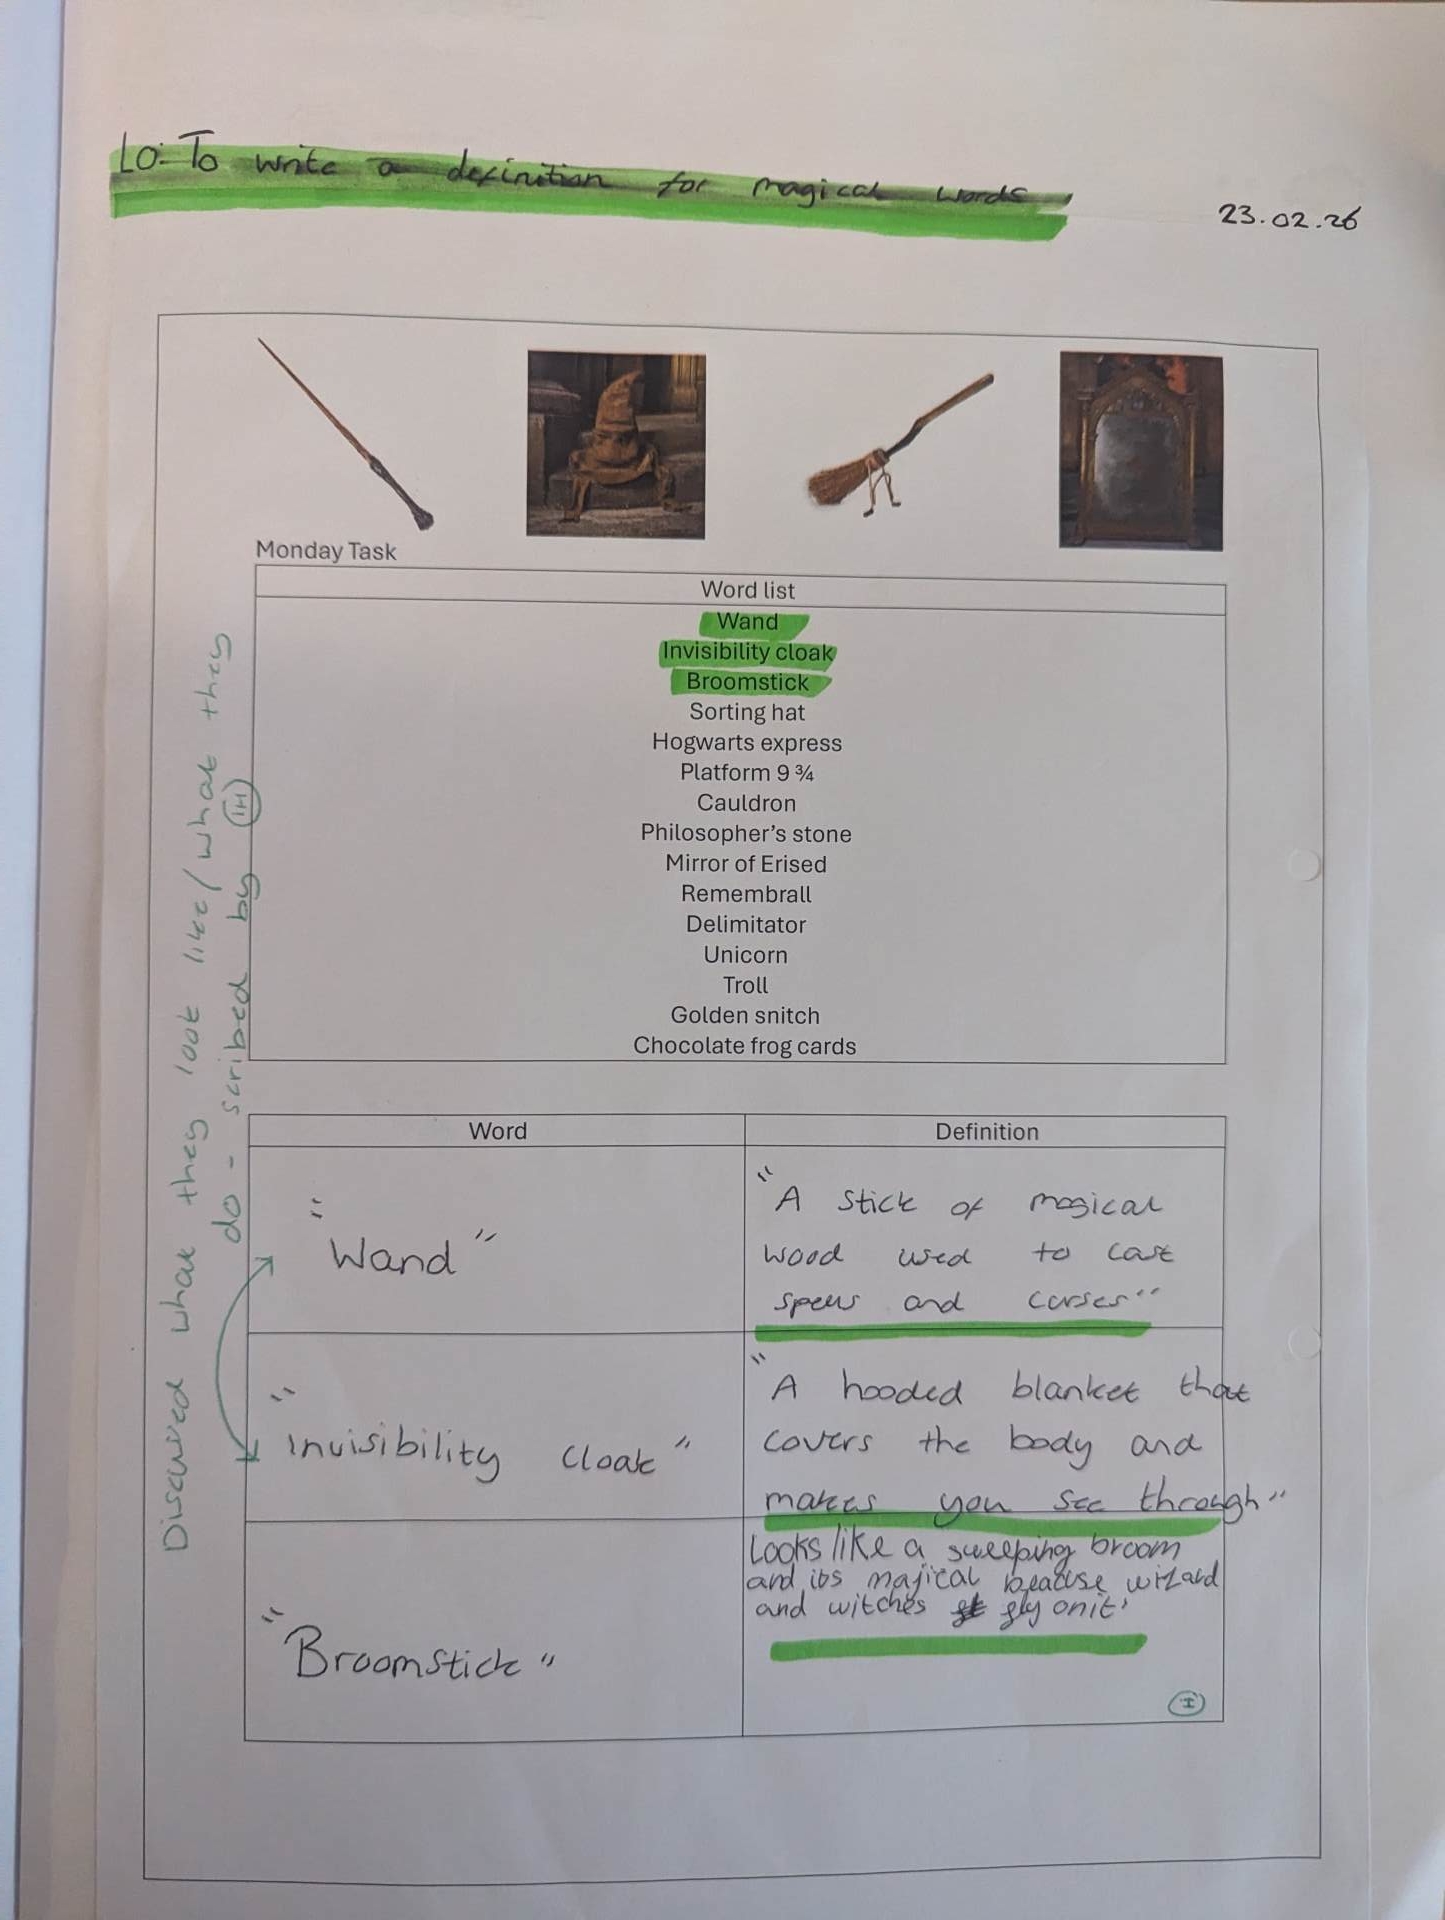 LO: To write a definition for magical words
23.02.26
Monday Task
Word list
Wand
Invisibility cloak
Broomstick
Sorting hat
Hogwarts express
Platform 9 ¾
Cauldron
Philosopher's stone
Mirror of Erised
Remembrall
Delimitator
Unicorn
Troll
Golden snitch
Chocolate frog cards
Discussed what they look like/what they
do - scribed by IH
Word
Definition
"Wand"
"A stick of magical
wood used to cast
spells and curses"
"Invisibility cloak"
"A hooded blanket that
covers the body and
makes you see through"
"Broomstick"
Looks like a sweeping broom
and its majical beacuse wizard
and witches fly on it'
I